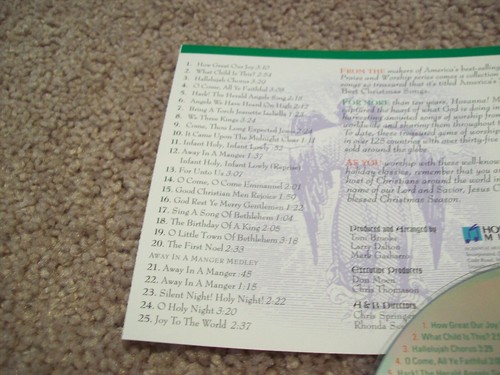 1. How Great Our Joy 3:10
2. What Child Is This? 2:54
3. Hallelujah Chorus 3:20
4. O Come, All Ye Faithful 3:08
5. Hark! The Herald Angels Sing
6. Angels We Have Heard On High
7. Bring A Torch Jeanette Isabella
8. We Three Kings 3:24
9. Come, Thou Long Expected Jesus
10. It Came Upon The Midnight Clear
11. Infant Holy, Infant Lowly :52
12. Away In A Manger 1:37
Infant Holy, Infant Lowly (Reprise)
13. For Unto Us 3:01
14. O Come, O Come Emmanuel 2:01
15. Good Christian Men Rejoice 1:50
16. God Rest Ye Merry Gentlemen 1:22
17. Sing A Song Of Bethlehem 1:04
18. The Birthday Of A King 2:05
19. O Little Town Of Bethlehem 3:18
20. The First Noel 2:33
AWAY IN A MANGER MEDLEY
21. Away In A Manger :45
22. Away In A Manger 1:15
23. Silent Night! Holy Night! 2:22
24. O Holy Night 3:20
25. Joy To The World 2:37
FROM THE makers of America's best-selling
Praise and Worship series comes a collection
songs so treasured that it's titled America's
Best Christmas Songs.
FOR MORE than ten years, Hosanna!
captured the heart of what God
harvesting anointed songs of worship from
worldwide and sharing them through
To date, these treasured gems of worship
in over 125 countries with over thirty-five
sold around the globe.
AS YOU worship with these well-known
holiday classics, remember that you are
host of Christians around the world in
name of our Lord and Savior, Jesus
blessed Christmas Season.
Produced and Arranged by
Tom Brooks
Larry Dalton
Mark Gasbarro
Executive Producers
Don Moen
Chris Thomason
A & R Directors
Chris Springer
Rhonda
HO
MU
1. How Great Our Joy
2. What Child Is This? 2:5
3. Hallelujah Chorus 3:25
4. O Come, All Ye Faithful
5. Hark! The Herald Angels